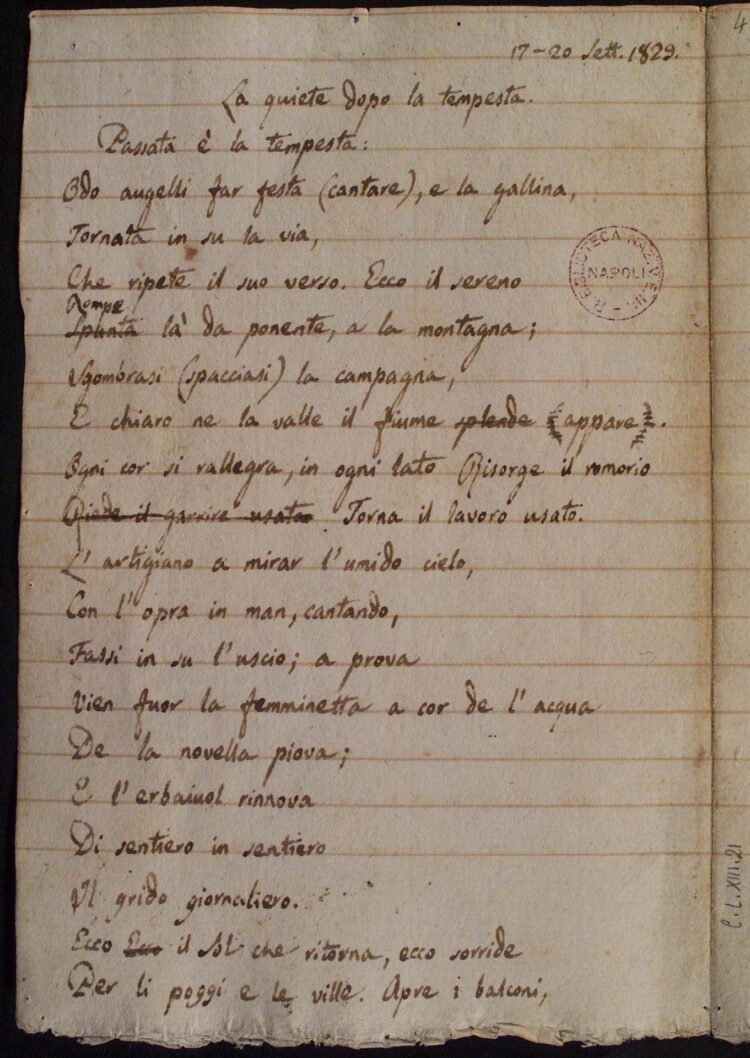 4
17-20 Sett. 1829.
La quiete dopo la tempesta.
Passata è la tempesta:
Odo augelli far festa (cantare), e la gallina,
Tornata in su la via,
Che ripete il suo verso. Ecco il sereno
Rompe
Spunta là da ponente, a la montagna;
Sgombrasi (spacciasi) la campagna,
E chiaro ne la valle il fiume splende (appare).
Ogni cor si rallegra, in ogni lato Risorge il romorio
Riede il garrire usato Torna il lavoro usato.
L'artigiano a mirar l'umido cielo,
Con l'opra in man, cantando,
Fassi in su l'uscio; a prova
Vien fuor la femminetta a cor de l'acqua
De la novella piova;
E l'erbaiuol rinnova
Di sentiero in sentiero
Il grido giornaliero.
Ecco Ecco il Sol che ritorna, ecco sorride
Per li poggi e le ville. Apre i balconi,
R. BIBLIOTECA NAZ. V. EM.
NAPOLI
C.L.XIII.21